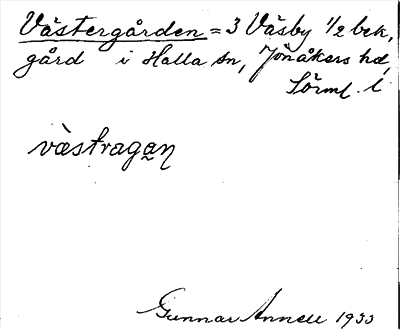 Västergården = 3 Väsby 1/2 bek.
gård i Halla sn, Jönåkers hd,
Sörml. l.
västragan
Gunnar Annell 1933